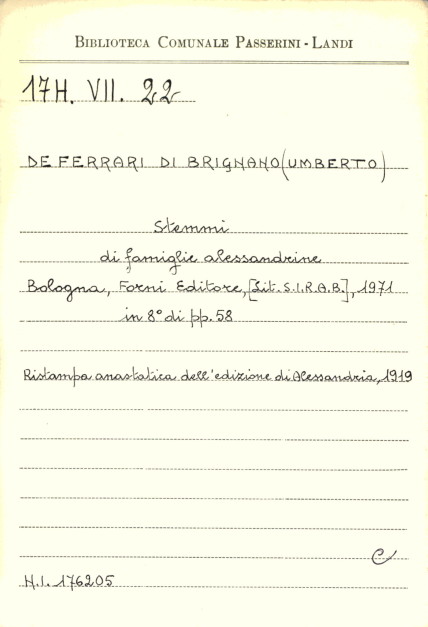 BIBLIOTECA COMUNALE PASSERINI - LANDI
17H. VII. 22
DE FERRARI DI BRIGNANO (UMBERTO)
Stemmi
di famiglie alessandrine
Bologna, Forni Editore, [Lit. S.I.R.A.B.], 1971
in 8° di pp. 58
Ristampa anastatica dell'edizione di Alessandria, 1919
C
N.I. 176205